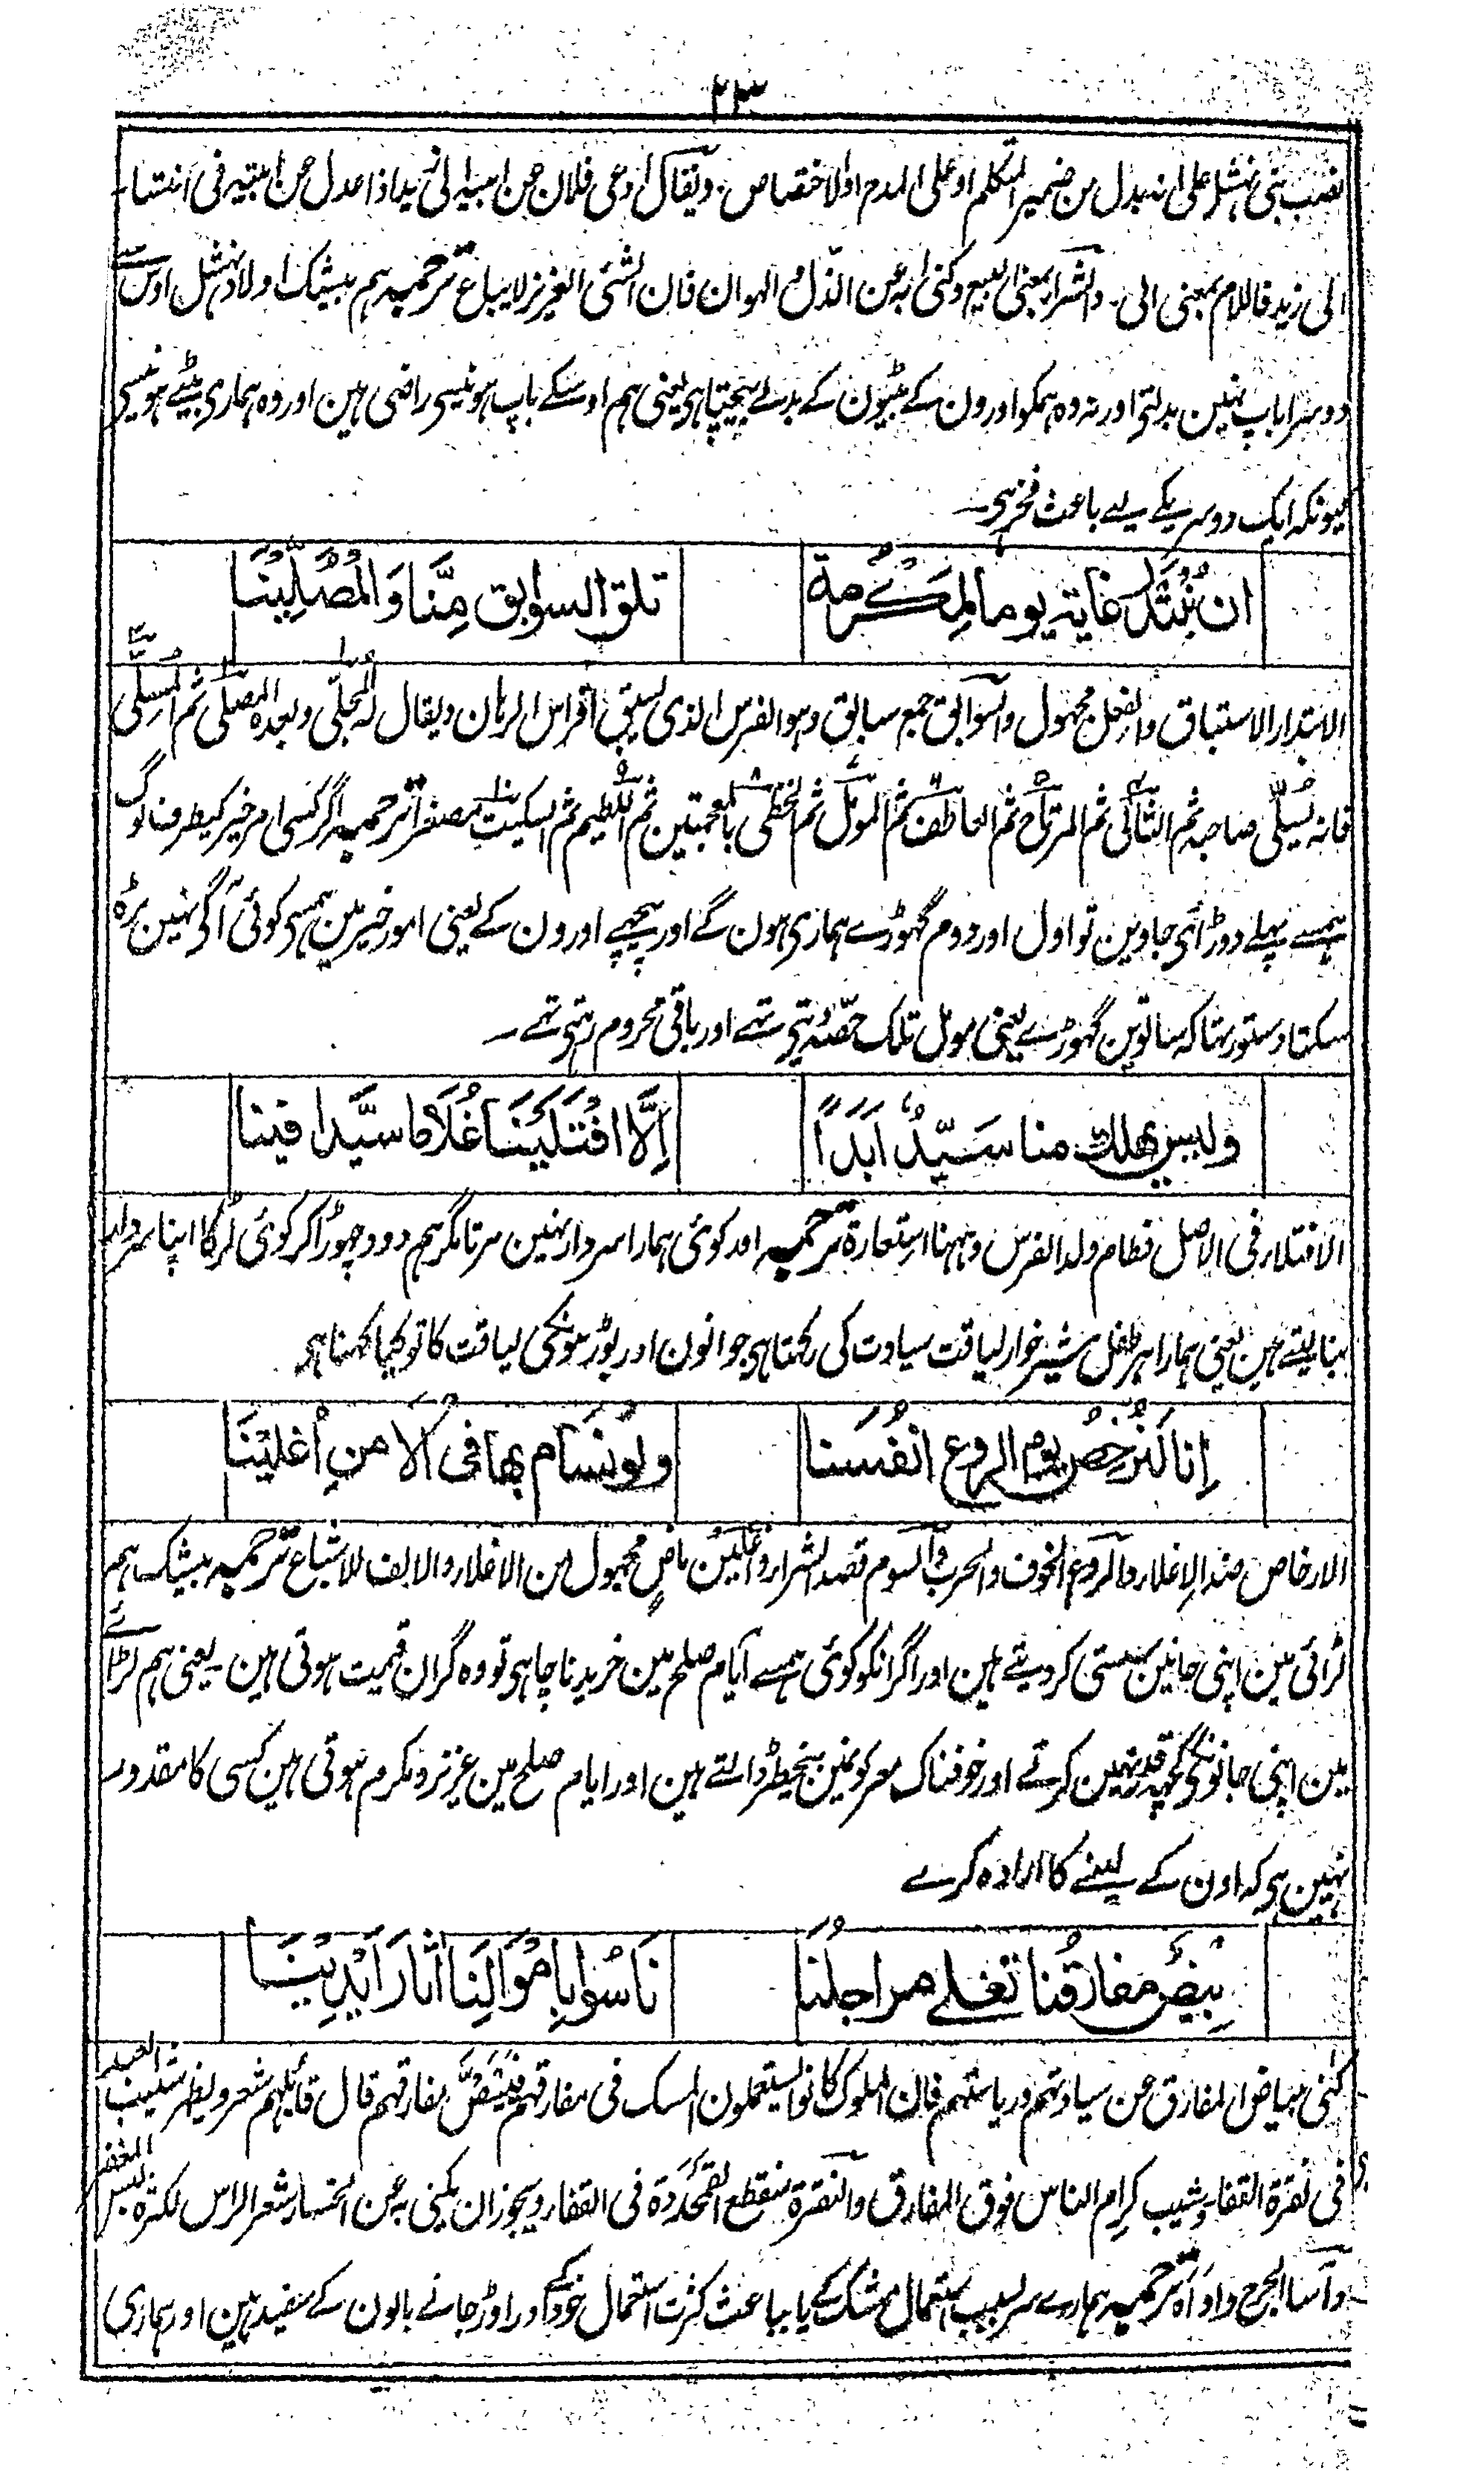 ۲۳
نصب بنی نہشل علی انہ بدل من ضمیر المتکلم او علی المدح او الاختصاص۔ ویقال ادعی فلان عن ابیہ الی زید اذا عدل عن ابیہ فی انتسابہ
الی زید فاللام بمعنی الی۔ والشراء بمعنی البیع وکنی بہ عن الذل والہوان فان الشئی العزیز لایباع ترجمہ ہم بیشک اولاد نہشل اوس سے
دوسرا باپ نہین بدلتے اور نہ وہ ہمکو اورون کے بیٹیون کے بدلے بیچتا ہی یعنی ہم اوسکے باپ ہونیسے راضی ہین اور وہ ہماری بیٹے ہونیسے
کیونکہ ایک دوسریکے لیے باعث فخر ہی۔
ان تُبْتَدَرْ غایۃ یوما لِمَكْرُمة
تلق السوابق مِنَّا وَالمُصَلِّیْنَا
الابتدار الاستباق والفعل مجہول والسوابق جمع سابق وہو الفرس الذی یسبق افراس الرہان ویقال لہ المجلی وبعدہ المصلی ثم المسلی
فانہ یسلی صاحبہ ثم التالی ثم المرتاح ثم العاطف ثم المومل ثم الخظی بالمعجمتین ثم اللطیم ثم السکیت مصغرا ترجمہ اگر کسی امر خیر کیطرف لوگ
ہمسے پہلے دوڑائی جاوین تو اول اور دوم گہوڑے ہماری ہون گے اور پیچہے اورون کے یعنی امور خیر مین ہمسے کوئی آگی نہین بڑہ
سکتا دستور تہا کہ ساتوین گہوڑے یعنی مومل تلک حصّہ دیتی تہے اور باقی محروم رہتی تہے۔
ولیس یهلك منا سَیِّدٌ اَبَدًا
اِلَّا افْتَلَیْنَا غُلَامًا سَیِّدًا فینا
الافتلاء فی الاصل فطام ولد الفرس وہہنا استعارة ترجمہ اور کوئی ہمارا سردار نہین مرتا مگر ہم دودہ چہوڑا کر کوئی لڑکا اپنا سردار
بنا لیتے ہین یعنی ہمارا ہر طفل شیر خوار لیاقت سیادت کی رکہتا ہی جوانون اور بوڑہونکی لیاقت کا تو کیا کہنا ہی
اِنا لَنُرْخِصُ یوم الروع انفُسَنا
ولو نُسَام بها فی الامنِ اُغلِیْنَا
الارخاص ضد الاغلاء والروع الخوف والحرب والسوم قصد الشراء واغلین ماضٍ مجہول من الاغلاء والالف للاشباع ترجمہ بیشک ہم
لڑائی مین اپنی جانین سستی کر دیتے ہین اور اگر انکو کوئی ہمسے ایام صلح مین خریدنا چاہی تو وہ گران قیمت ہوتی ہین۔ یعنی ہم لڑائے
مین اپنی جانونکی کچہہ قدر نہین کرتے اور خوفناک معرکونمین بیخطر ڈالتے ہین اور ایام صلح مین عزیز و مکرم ہوتی ہین کسی کا مقدور
نہین ہی کہ اون کے لینے کا ارادہ کرے
بِیْضٌ مفارقُنا تغلی مراجلُنا
نَاسُوا بِاَمْوَالِنَا اٰثَارَ اَیْدِیْنَا
کنی ببیاض المفارق عن سیادتہم وریاستہم فان الملوک کانوا یستعملون المسک فی مفارقہم فیبیض مفارقہم قال قائلہم شعر ویظہر شیب العبد
فی نقرة القفا۔ وشیب کرام الناس فوق المفارق والنقرة منقطع القمحدوة فی القفا ویجوز ان یکنی بہ عن انحسار شعر الراس لکثرة لبس المغفر
واسا الجرح داواہ ترجمہ ہمارے سر بسبب استعمال مشک کے یا بباعث کثرت استعمال خود کے اور اوڑجانے بالون کے سفید ہین اور ہماری